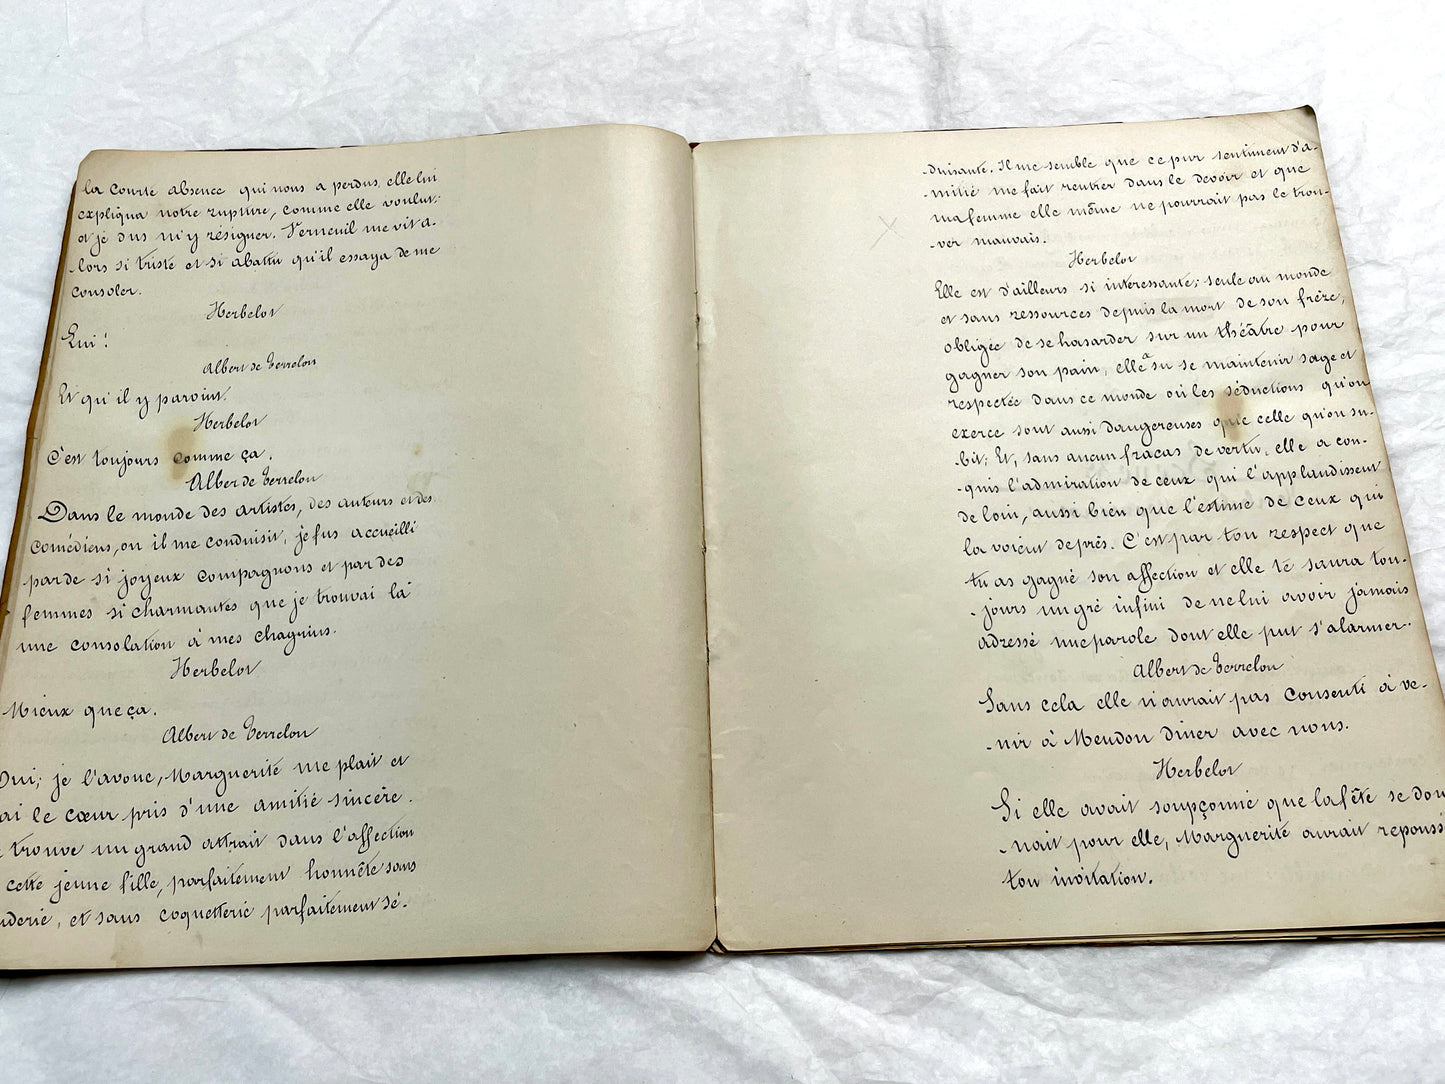 la courte absence qui nous a perdus, elle lui
expliqua notre rupture, comme elle voulut;
et je dus m'y résigner. Verneuil me vit a-
-lors si triste et si abattu qu'il essaya de me
consoler.
Herbelot
Lui!
Albert de Terrelon
Et qu'il y parvint.
Herbelot
C'est toujours comme ça.
Albert de Terrelon
Dans le monde des artistes, des auteurs et des
comédiens, où il me conduisit, je fus accueilli
par de si joyeux compagnons et par des
femmes si charmantes que je trouvai là
une consolation à mes chagrins.
Herbelot
Mieux que ça.
Albert de Terrelon
Oui; je l'avoue, Marguerite me plait et
ai le cœur pris d'une amitié sincère.
trouve un grand attrait dans l'affection
cette jeune fille, parfaitement honnête sans
uderie, et sans coquetterie parfaitement sé-
-duisante. Il me semble que ce pur sentiment d'a-
-mitié me fait rentrer dans le devoir et que
ma femme elle même ne pourrait pas le trou-
-ver mauvais.
Herbelot
Elle est d'ailleurs si intéressante; seule au monde
et sans ressources depuis la mort de son frère,
obligée de se hasarder sur un théâtre pour
gagner son pain, elle a su se maintenir sage et
respectée dans ce monde où les séductions qu'on
exerce sont aussi dangereuses que celle qu'on su-
-bit; Et, sans aucun fracas de vertu, elle a con-
-quis l'admiration de ceux qui l'applaudissent
de loin, aussi bien que l'estime de ceux qui
la voient de près. C'est par ton respect que
tu as gagné son affection et elle te saura tou-
-jours un gré infini de ne lui avoir jamais
adressé une parole dont elle put s'alarmer.
Albert de Terrelon
Sans cela elle n'aurait pas consenti à ve-
-nir à Meudon diner avec nous.
Herbelot
Si elle avait soupçonné que la fête se don
-nait pour elle, Marguerite aurait repoussé
ton invitation.